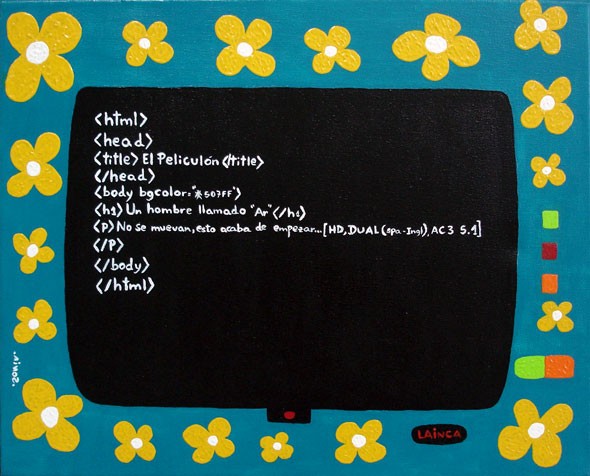 <html>
<head>
<title> El Peliculón </title>
</head>
<body bgcolor="*507FF">
<h1> Un hombre llamado "Ar" </h1>
<p> No se muevan, esto acaba de empezar... [HD, DUAL (spa-Ingl), AC3 5.1]
</P>
</body>
</html>
LAiNCA
.Sonia.